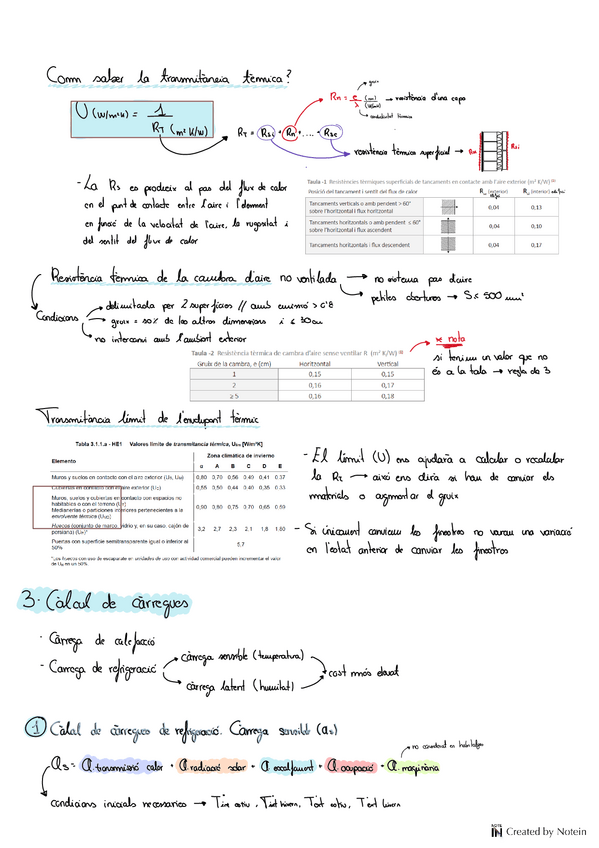 Com saber la transmitància tèrmica?
U (W/m²K) = 1 / RT (m² K/W)
gruix
Rn = e (m) / λ (W/mK) → resistència d'una capa
conductivitat tèrmica
RT = Rsi + Rn + .... + Rse
resistència tèrmica superficial → Rse Rsi
- La Rs es produeix al pas del flux de calor
en el punt de contacte entre l'aire i l'element
en funció de la velocitat de l'aire, la rugositat i
del sentit del flux de calor
Taula -1 Resistències tèrmiques superficials de tancaments en contacte amb l'aire exterior (m² K/W)
Posició del tancament i sentit del flux de calor Rse (exterior) Rsi (interior)
Tancaments verticals o amb pendent > 60° sobre l'horitzontal i flux horitzontal 0,04 0,13
Tancaments horitzontals o amb pendent ≤ 60° sobre l'horitzontal i flux ascendent 0,04 0,10
Tancaments horitzontals i flux descendent 0,04 0,17
Resistència tèrmica de la cambra d'aire no ventilada → no sistema pas d'aire
petites obertures → S ≤ 500 mm²
Condicions
delimitada per 2 superfícies // amb emissió > 0'8
gruix = 10% de les altres dimensions i ≤ 30cm
no intercanvi amb l'ambient exterior
Taula -2 Resistència tèrmica de cambra d'aire sense ventilar R (m² K/W)
Gruix de la cambra, e (cm) Horitzontal Vertical
1 0,15 0,15
2 0,16 0,17
≥ 5 0,16 0,18
* nota
si tenim un valor que no
és a la taula → regla de 3
Transmitància límit de l'envolupant tèrmic
Tabla 3.1.1.a - HE1 Valores límite de transmitancia térmica, Ulim [W/m²K]
Elemento Zona climática de invierno
α A B C D E
Muros y suelos en contacto con el aire exterior (US, UM) 0,80 0,70 0,56 0,49 0,41 0,37
Cubiertas en contacto con el aire exterior (UC) 0,55 0,50 0,44 0,40 0,35 0,33
Muros, suelos y cubiertas en contacto con espacios no habitables o con el terreno (UT)
Medianerías o particiones interiores pertenecientes a la envolvente térmica (UMD) 0,90 0,80 0,75 0,70 0,65 0,59
Huecos (conjunto de marco, vidrio y, en su caso, cajón de persiana) (UH)* 3,2 2,7 2,3 2,1 1,8 1,80
Puertas con superficie semitransparente igual o inferior al 50% 5,7
*Los huecos con uso de escaparate en unidades de uso con actividad comercial pueden incrementar el valor de UH en un 50%.
- El límit (U) ens ajudarà a calcular o recalcular
la RT → això ens dirà si hem de canviar els
materials o augmentar el gruix
- Si únicament canviem les finestres no veurem una variació
en l'estat anterior de canviar les finestres
3. Càlcul de càrregues
· Càrrega de calefacció
· Càrrega de refrigeració
càrrega sensible (temperatura)
càrrega latent (humitat)
cost més elevat
1 Càlcul de càrregues de refrigeració. Càrrega sensible (Qs)
no comptarem en habitatges
Qs = Q.transmissió calor + Q.radiació solar + Q.escalfament + Q.ocupació + Q.maquinària
condicions inicials necessàries → Tint estiu, Tint hivern, Text estiu, Text hivern
NOTE IN Created by Notein